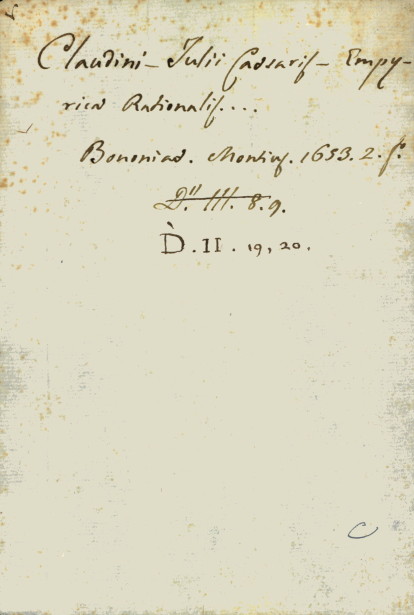 Claudini - Julii Caesaris - Empy-
rica Rationalis....
Bononiae. Montius. 1653. 2. f.º
D." III. 8. 9.
D̀. II. 19, 20.
C